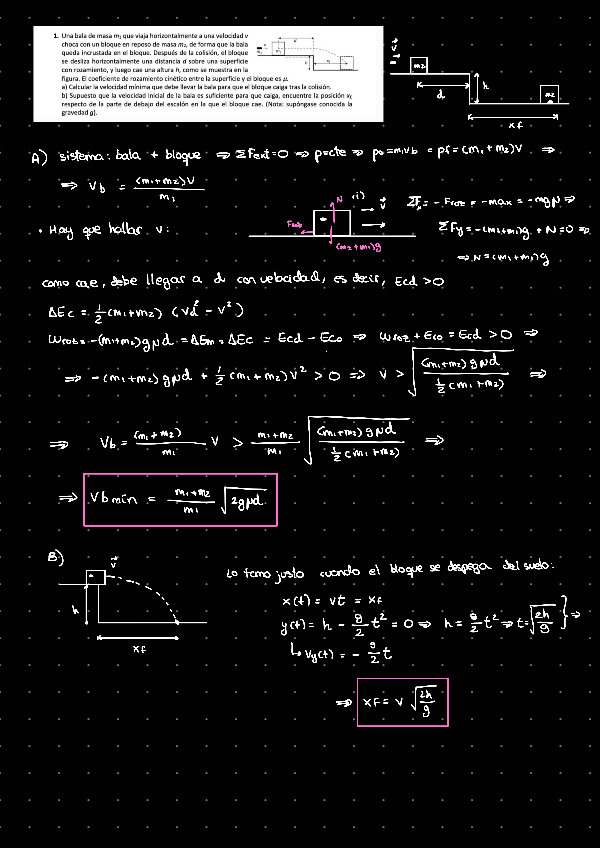 1. Una bala de masa m₁ que viaja horizontalmente a una velocidad v
choca con un bloque en reposo de masa m₂, de forma que la bala
queda incrustada en el bloque. Después de la colisión, el bloque
se desliza horizontalmente una distancia d sobre una superficie
con rozamiento, y luego cae una altura h, como se muestra en la
figura. El coeficiente de rozamiento cinético entre la superficie y el bloque es μ.
a) Calcular la velocidad mínima que debe llevar la bala para que el bloque caiga tras la colisión.
b) Supuesto que la velocidad inicial de la bala es suficiente para que caiga, encuentre la posición x_f
respecto de la parte de debajo del escalón en la que el bloque cae. (Nota: supóngase conocida la
gravedad g).
v⃗
m2
d
h
m2
xf
A) sistema: bala + bloque ⇒ ΣFext=0 ⇒ p=cte ⇒ p0=m1vb = pf=(m1+m2)V ⇒
⇒ Vb = (m1+m2)V / m1
• Hay que hallar v:
N
(i)
v⃗
Froz
(m2+m1)g
ΣFx=-Froz = -max = -mgμ ⇒
ΣFy=-(m2+m1)g + N=0 ⇒
⇒ N=(m1+m2)g
como cae, debe llegar a d con velocidad, es decir, Ecd >0
ΔEc = 1/2 (m1+m2) (Vd² - V²)
Wroz=-(m1+m2)gμd = ΔEm=ΔEc = Ecd - Eco ⇒ Wroz + Eco = Ecd > 0 ⇒
⇒ -(m1+m2)gμd + 1/2 (m1+m2)V² > 0 ⇒ V > √((m1+m2)gμd / 1/2 (m1+m2)) ⇒
⇒ Vb = (m1+m2)/m1 V > m1+m2/m1 √((m1+m2)gμd / 1/2 (m1+m2)) ⇒
⇒ Vb mín = m1+m2/m1 √2gμd
B)
v⃗
h
xf
Lo tomo justo cuando el bloque se despega del suelo:
x(t) = vt = xf
y(t) = h - g/2 t² = 0 ⇒ h = g/2 t² ⇒ t=√(2h/g) } ⇒
↳ Vy(t) = - g/2 t
⇒ xF = v √(2h/g)